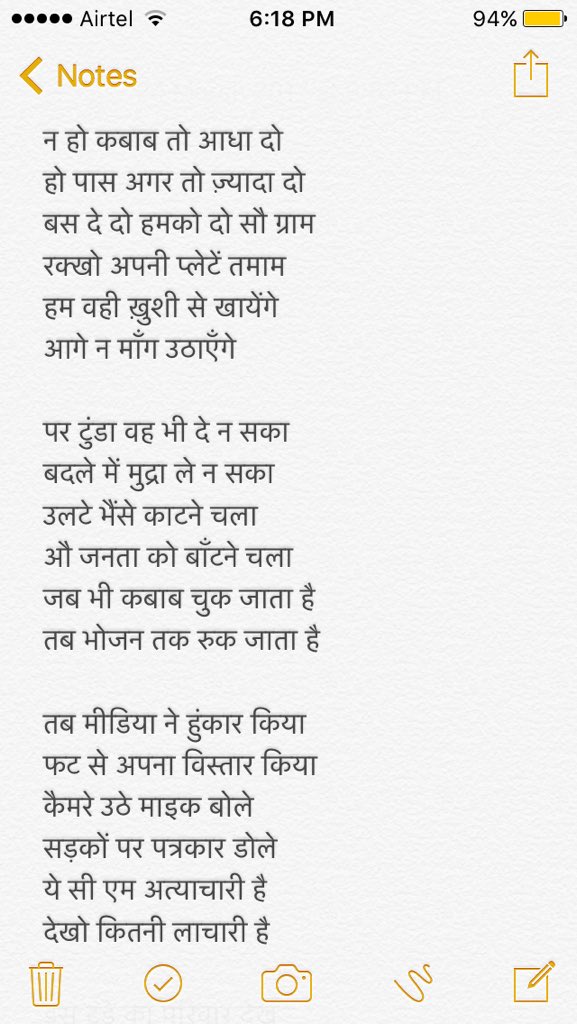 Airtel 6:18 PM 94%
Notes
न हो कबाब तो आधा दो
हो पास अगर तो ज़्यादा दो
बस दे दो हमको दो सौ ग्राम
रक्खो अपनी प्लेटें तमाम
हम वही ख़ुशी से खायेंगे
आगे न माँग उठाएँगे
पर टुंडा वह भी दे न सका
बदले में मुद्रा ले न सका
उलटे भैंसे काटने चला
औ जनता को बाँटने चला
जब भी कबाब चुक जाता है
तब भोजन तक रुक जाता है
तब मीडिया ने हुंकार किया
फट से अपना विस्तार किया
कैमरे उठे माइक बोले
सड़कों पर पत्रकार डोले
ये सी एम अत्याचारी है
देखो कितनी लाचारी है